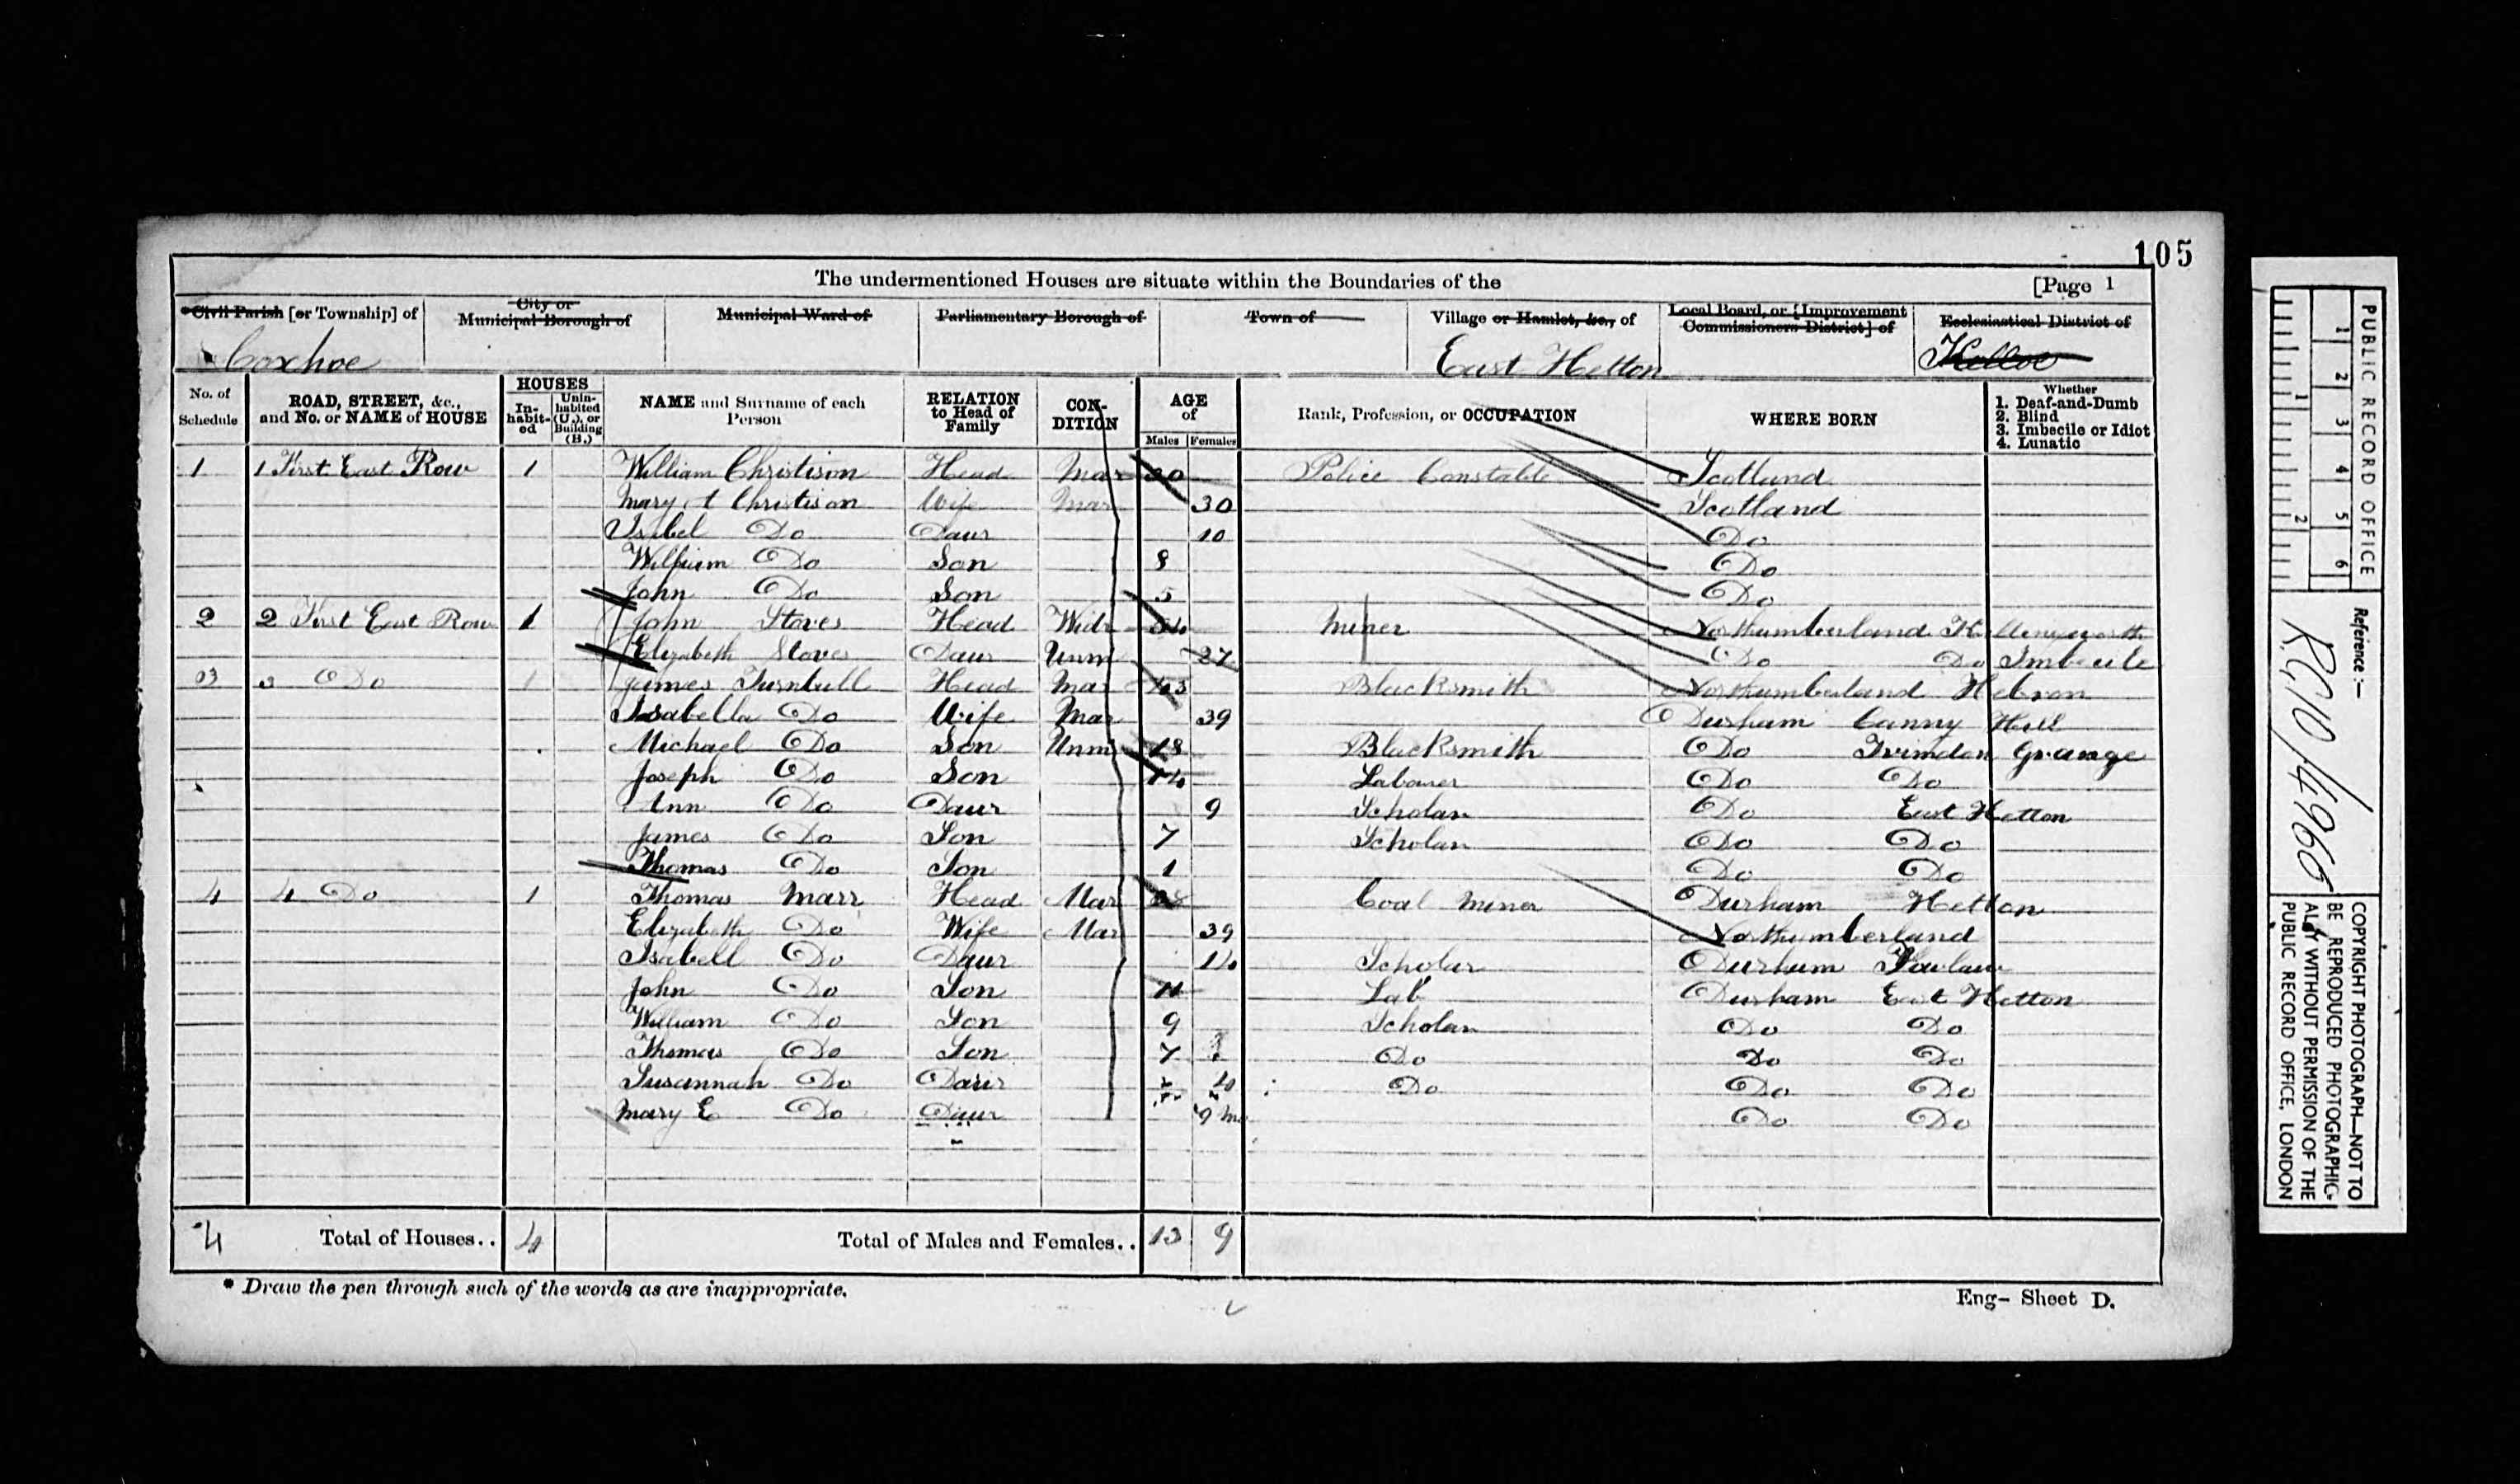 105
The undermentioned Houses are situate within the Boundaries of the [Page 1
*Civil Parish [or Township] of
City or Municipal Borough of
Municipal Ward of
Parliamentary Borough of
Town of
Village or Hamlet, &c., of
Local Board, or [Improvement Commissioners District] of
Ecclesiastical District of
Coxhoe East Hetton Kelloe
No. of Schedule
ROAD, STREET, &c., and No. or NAME of HOUSE
HOUSES
In-habit-ed
Unin-habited (U.), or Building (B.)
NAME and Surname of each Person
RELATION to Head of Family
CON-DITION
AGE of
Males Females
Rank, Profession, or OCCUPATION
WHERE BORN
Whether
1. Deaf-and-Dumb
2. Blind
3. Imbecile or Idiot
4. Lunatic
1 1 First East Row 1 William Christison Head Mar 30 Police Constable Scotland
Mary A Christison Wife Mar 30 Scotland
Isabel Do Daur 10 Do
William Do Son 8 Do
John Do Son 5 Do
2 2 First East Row 1 John Stoves Head Widr 54 Miner Northumberland Killingworth
Elizabeth Stoves Daur Unm 27 Do Do Imbecile
3 3 Do 1 James Turnbull Head Mar 43 Blacksmith Northumberland Hebron
Isabella Do Wife Mar 39 Durham Canny Hill
Michael Do Son Unm 18 Blacksmith Do Trimdon Grange
Joseph Do Son 14 Labourer Do Do
Ann Do Daur 9 Scholar Do East Hetton
James Do Son 7 Scholar Do Do
Thomas Do Son 1 Do Do
4 4 Do 1 Thomas Marr Head Mar Coal Miner Durham Hetton
Elizabeth Do Wife Mar 39 Northumberland
Isabell Do Daur 14 Scholar Durham Towlaw
John Do Son 11 Lab Durham East Hetton
William Do Son 9 Scholar Do Do
Thomas Do Son 7 Do Do Do
Susannah Do Daur 4 Do Do Do
Mary E Do Daur 9 Mo Do Do
4 Total of Houses.. 4 Total of Males and Females.. 13 9
* Draw the pen through such of the words as are inappropriate.
Eng- Sheet D.
PUBLIC RECORD OFFICE
1 2 3 4 5 6
1 2
Reference:-
R.G.10/4966
COPYRIGHT PHOTOGRAPH—NOT TO
BE REPRODUCED PHOTOGRAPHIC-
ALLY WITHOUT PERMISSION OF THE
PUBLIC RECORD OFFICE, LONDON